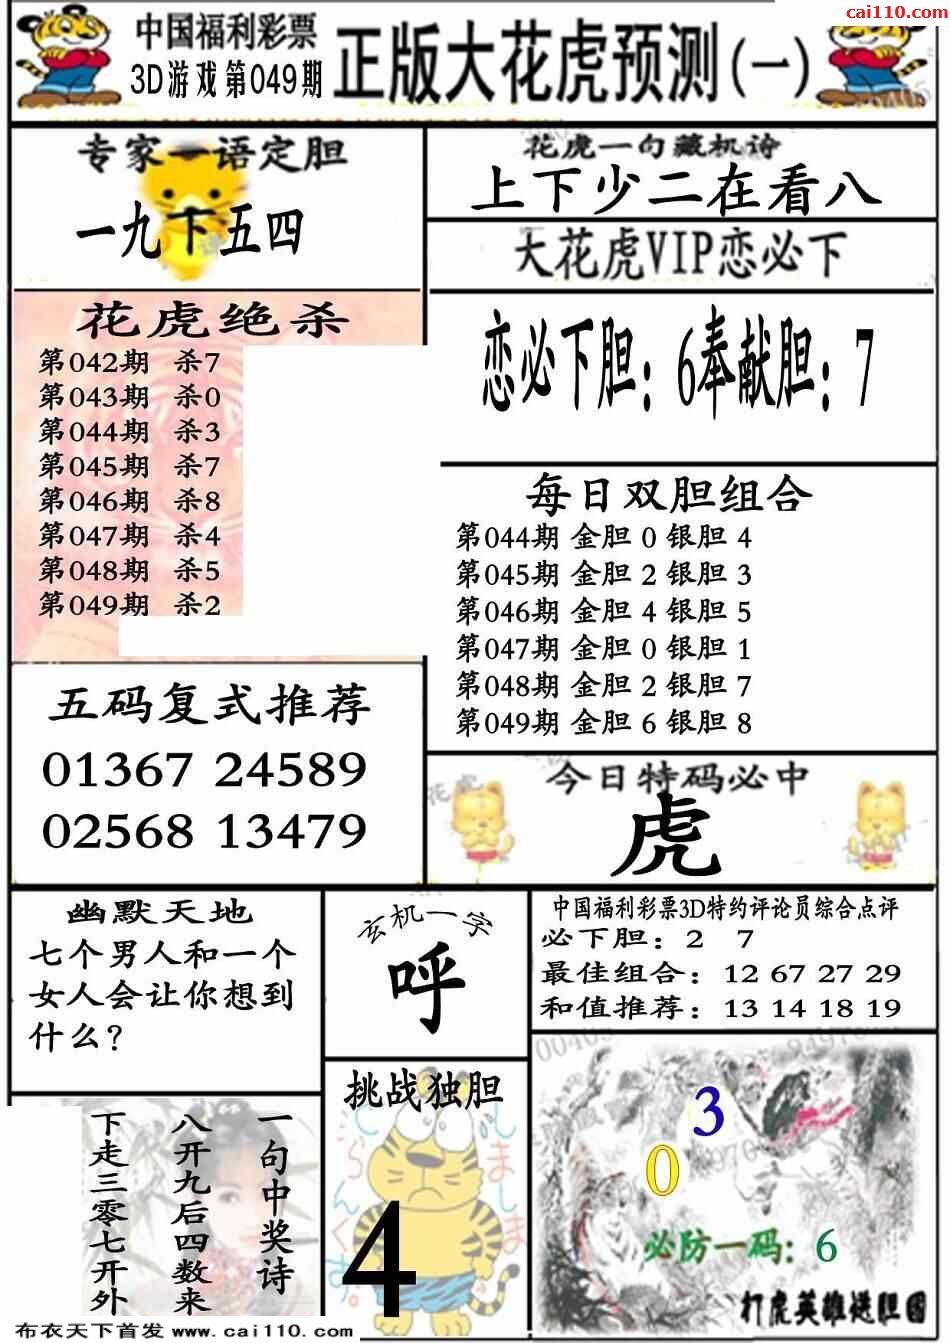 cai110.com
中国福利彩票
3D游戏第049期
正版大花虎预测(一)
专家一语定胆
一九下五四
花虎一句藏机诗
上下少二在看八
大花虎VIP恋必下
恋必下胆：6奉献胆：7
花虎绝杀
第042期 杀7
第043期 杀0
第044期 杀3
第045期 杀7
第046期 杀8
第047期 杀4
第048期 杀5
第049期 杀2
每日双胆组合
第044期 金胆 0 银胆 4
第045期 金胆 2 银胆 3
第046期 金胆 4 银胆 5
第047期 金胆 0 银胆 1
第048期 金胆 2 银胆 7
第049期 金胆 6 银胆 8
五码复式推荐
01367 24589
02568 13479
今日特码必中
虎
幽默天地
七个男人和一个
女人会让你想到
什么？
玄机一字
呼
中国福利彩票3D特约评论员综合点评
必下胆：2 7
最佳组合：12 67 27 29
和值推荐：13 14 18 19
一句中奖诗
八开九后四数来
下走三零七开外
挑战独胆
4
3
0
必防一码：6
打虎英雄送胆图
布衣天下首发 www.cai110.com